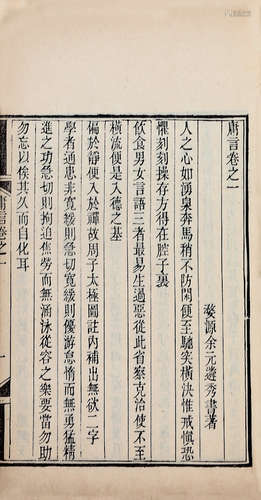 庸言卷之一
婺源余元遴秀書著
人之心如湧泉奔馬稍不防閑便至馳突橫決惟戒慎恐
懼刻刻操存方得在腔子裏
飲食男女言語三者最易生過惡從此省察克治使不至
橫流便是入德之基
偏於靜便入於禪故周子太極圖註內補出無欲二字
學者通患非寬緩則急切寬緩則優游怠惰而無勇猛精
進之功急切則拘迫焦勞而無涵泳從容之樂要當勿助
勿忘以俟其久而自化耳
庸言卷之一